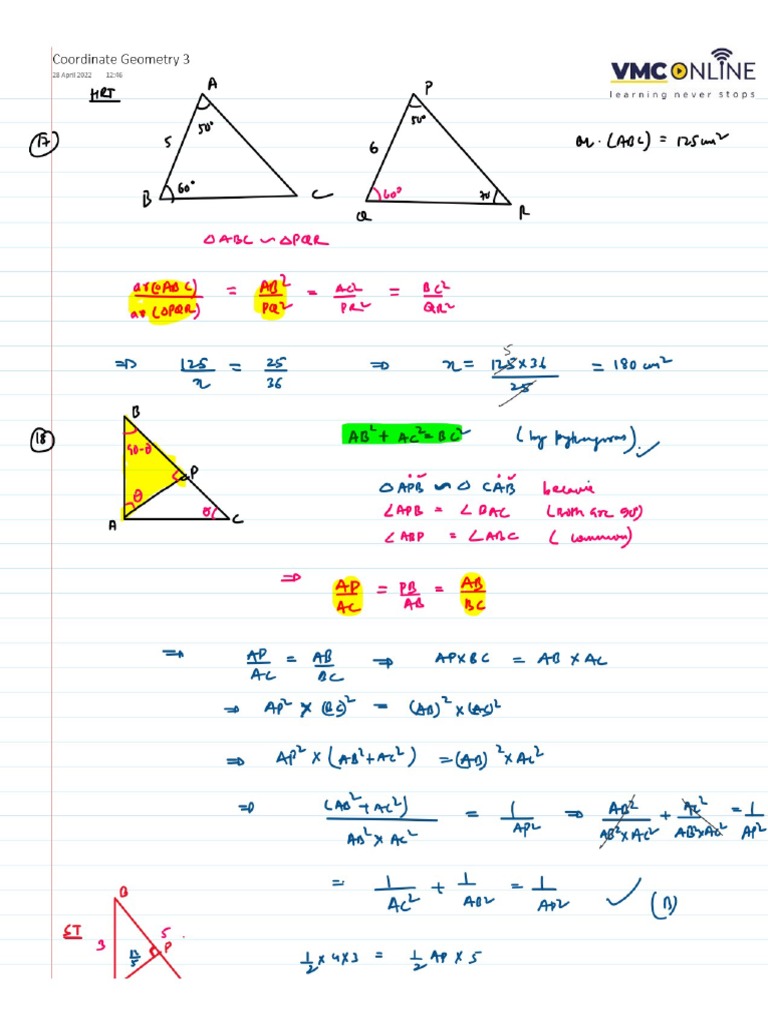 Coordinate Geometry 3
28 April 2022 12:46
VMC ONLINE
learning never stops
HRT
17
A
50°
5
B
60°
C
P
50°
6
60°
70
Q
R
ar.(ABC) = 125cm²
△ABC ∽ △PQR
ar(△ABC)/ar(△PQR) = AB²/PQ² = AC²/PR² = BC²/QR²
⇒ 125/x = 25/36 ⇒ x = 125×36/25 = 180 cm²
5
18
B
90-θ
P
θ
A
θ
C
AB² + AC² = BC² (by pythagoras)
△APB ∽ △CAB because
∠APB = ∠BAC (both are 90)
∠ABP = ∠ABC (common)
⇒ AP/AC = PB/AB = AB/BC
⇒ AP/AC = AB/BC ⇒ AP×BC = AB×AC
⇒ AP² × (BC)² = (AB)² × (AC)²
⇒ AP² × (AB² + AC²) = (AB)² × AC²
⇒ (AB² + AC²)/AB² × AC² = 1/AP² ⇒ AB²/AB² × AC² + AC²/AB² × AC² = 1/AP²
= 1/AC² + 1/AB² = 1/AP² ✓ (B)
ST
B
3
5
12/5
P
1/2 × 4 × 3 = 1/2 AP × 5